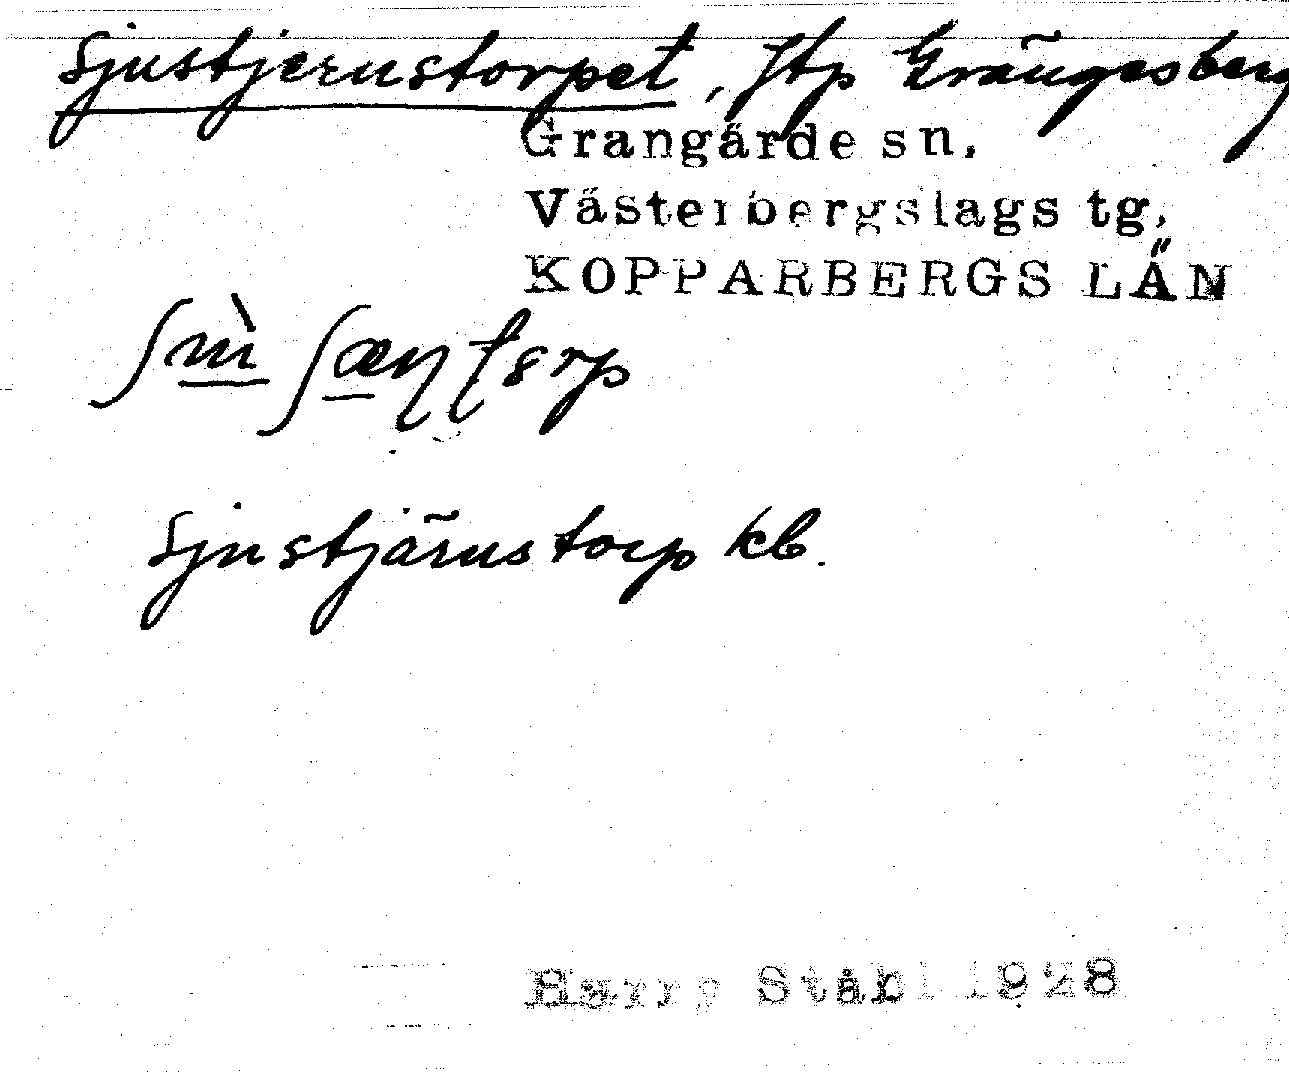 Sjustjernstorpet, ftp Grängesberg
Grangärde sn.
Västerbergslags tg.
KOPPARBERGS LÄN
Sjustjärnstorp kb.
Harry Ståhl 1928